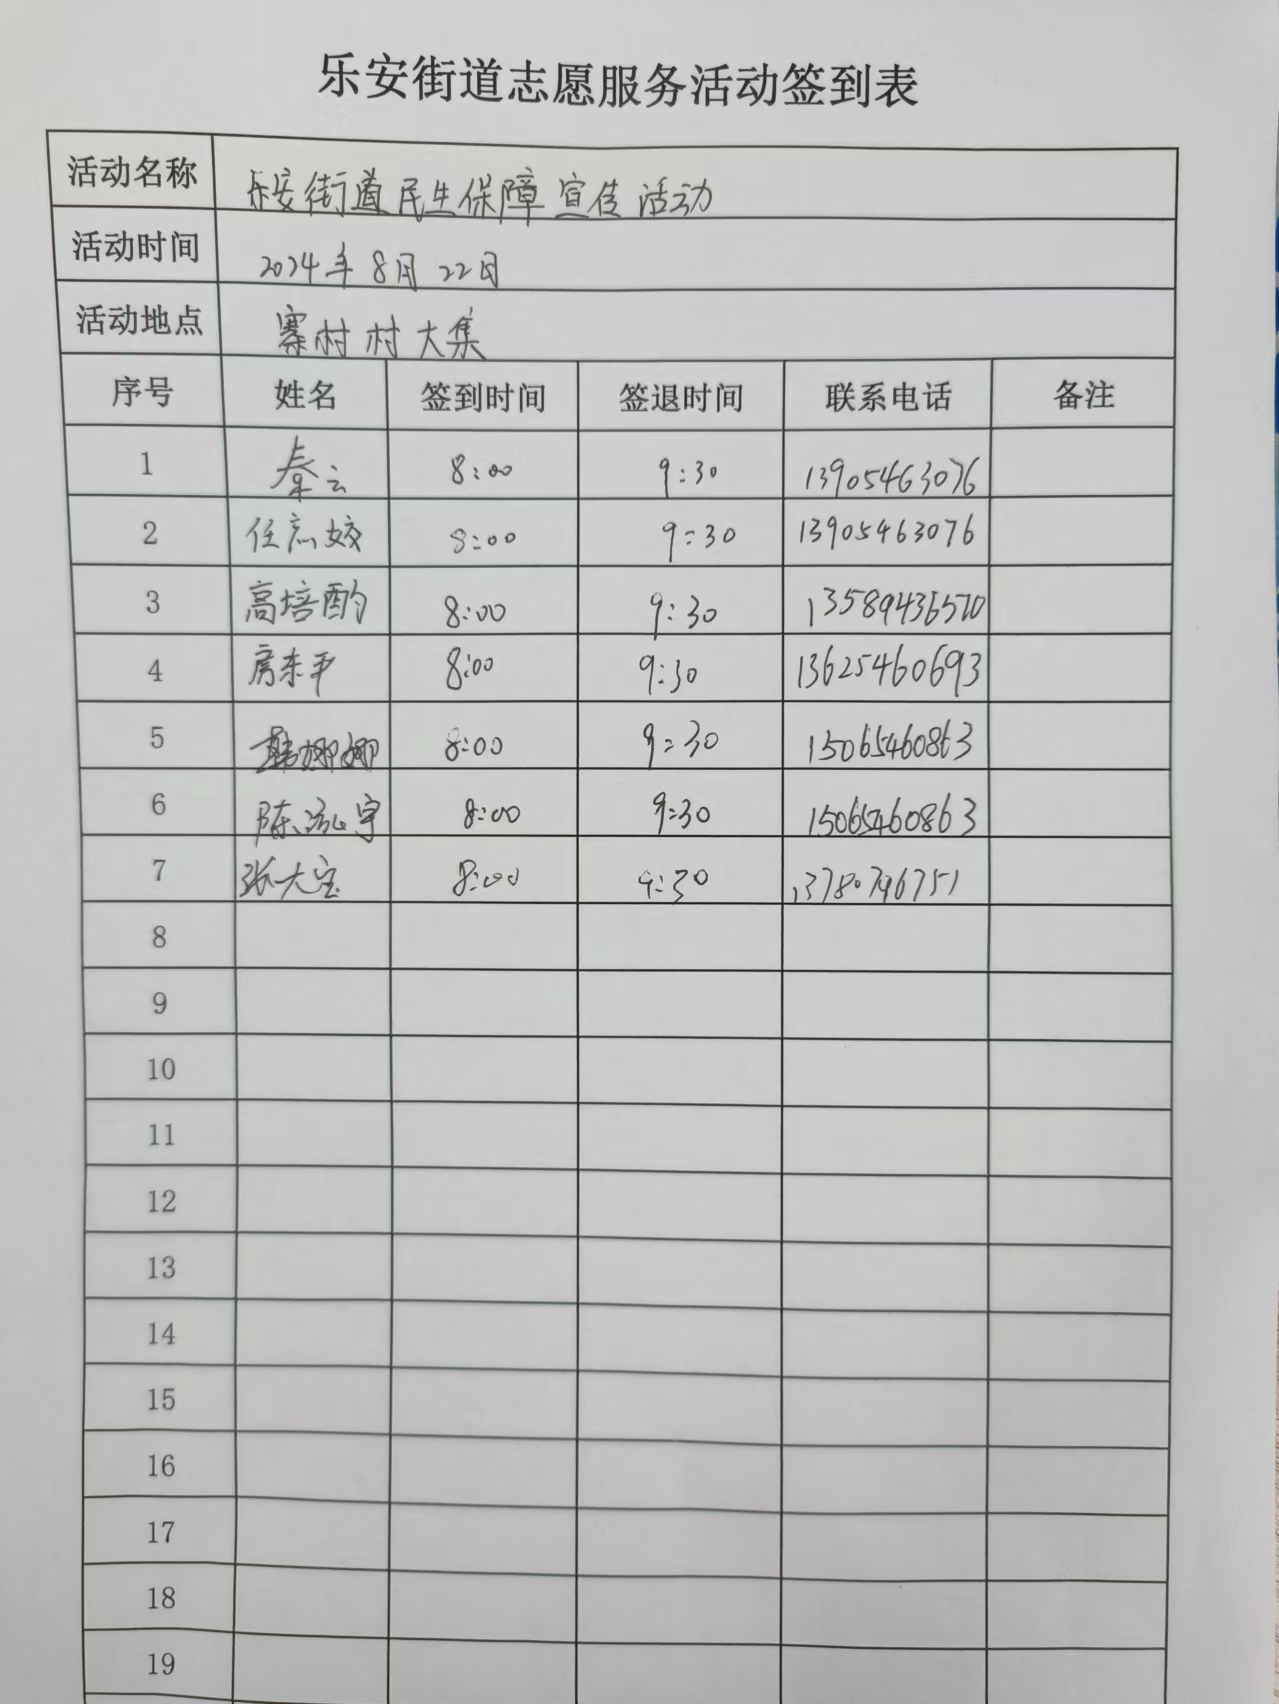 乐安街道志愿服务活动签到表
活动名称 乐安街道民生保障宣传活动
活动时间 2024年8月22日
活动地点 寨村村大集
序号 姓名 签到时间 签退时间 联系电话 备注
1 秦云 8:00 9:30 13905463076
2 任志姣 8:00 9:30 13905463076
3 高培酌 8:00 9:30 13589436570
4 房东平 8:00 9:30 13625460693
5 韩娜娜 8:00 9:30 15065460863
6 陈泓宇 8:00 9:30 15065460863
7 张大宝 8:00 9:30
8
9
10
11
12
13
14
15
16
17
18
19